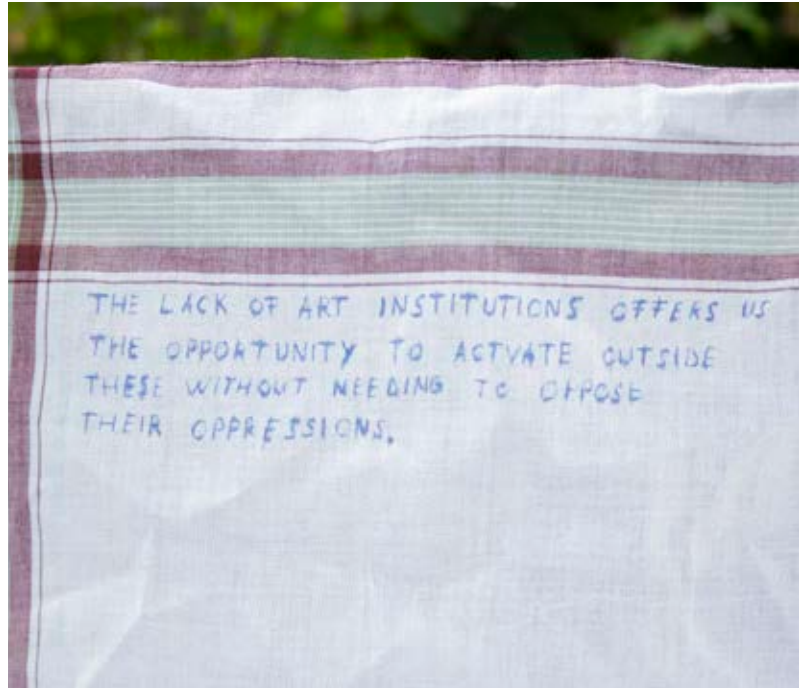 THE LACK OF ART INSTITUTIONS OFFERS US
THE OPPORTUNITY TO ACTVATE OUTSIDE
THESE WITHOUT NEEDING TO OPPOSE
THEIR OPPRESSIONS.